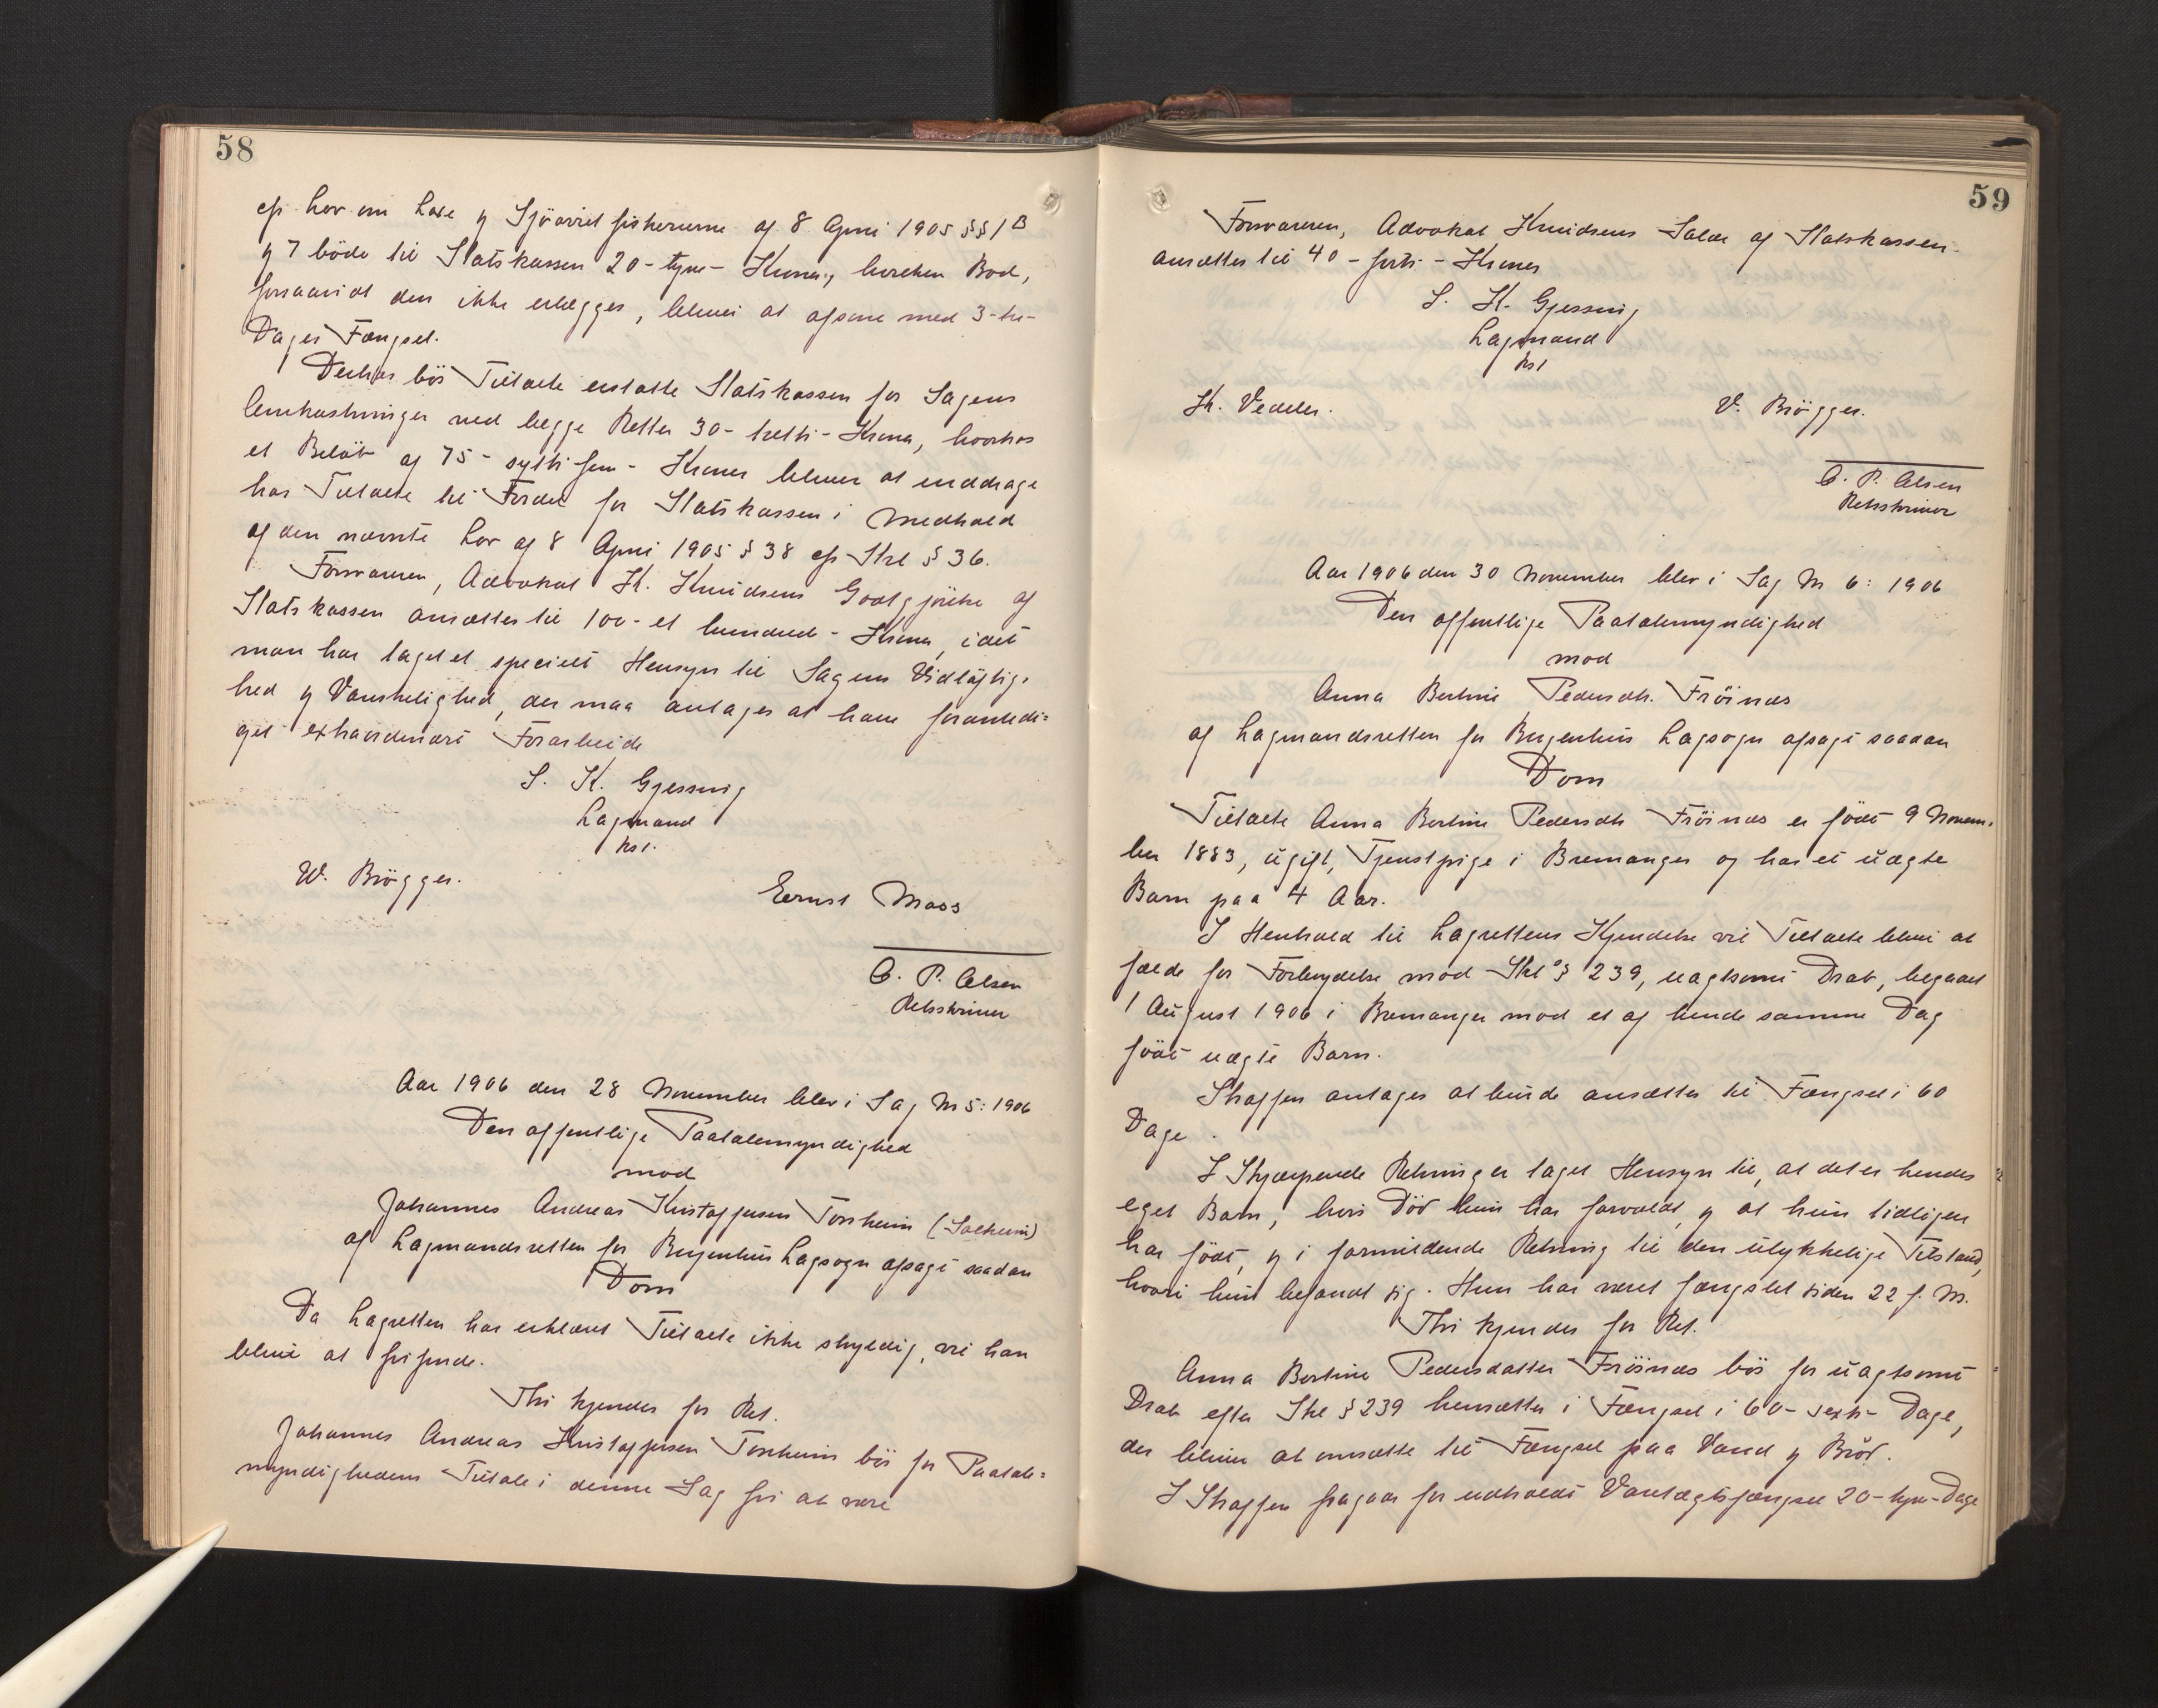 58
cfr Lov om Laxe og Sjöörretfiskerierne af 8 April 1905 §§ 1 B
og 7 böde til Statskassen 20 - tyve - Kroner, hvilken Bod,
forsaavidt den ikke erlægges, bliver at afsone med 3 - tre -
Dages Fængsel.
Derhos bör Tiltalte erstatte Statskassen for Sagens
Omkostninger ved begge Retter 30 - tretti - Kroner, hvorhos
et Belöb af 75 - sytti fem - Kroner bliver at inddrage
hos Tiltalte til Fordel for Statskassen i Medhold
af den nævnte Lov af 8 April 1905 § 38 cfr Strl § 36.
Forsvareren, Advokat K. Knudsens Godtgjörelse af
Statskassen ansættes til 100 - et hundred - Kroner, idet
man har taget et specielt Hensyn til Sagens Vidlöftig-
hed og Vanskelighed, der maa antages at have foranledi-
get extraordinært Forarbeide
S. K. Gjessing
Lagmand
kst.
W. Brögger.
Ernst Moss
O. P. Olsen
Retsskriver
Aar 1906 den 28 November blev i Sag No 5: 1906
Den offentlige Paatalemyndighed
mod
Johannes Andreas Kristoffersen Torsheim (Solheim)
af Lagmandsretten for Bergenhus Lagsogn afsagt saadan
Dom
Da Lagretten har erklæret Tiltalte ikke skyldig, vil han
blive at frifinde.
Thi kjendes for Ret.
Johannes Andreas Kristoffersen Torsheim bör for Paatale-
myndighedens Tiltale i denne Sag fri at være
59
Forsvareren, Advokat Knudsens Salær af Statskassen
ansættes til 40 - forti - Kroner
S. K. Gjessing
Lagmand
kst
K. Vedeler.
W. Brögger.
O. P. Olsen
Retsskriver
Aar 1906 den 30 November blev i Sag No 6: 1906
Den offentlige Paatalemyndighed
mod
Anna Bertine Pedersdtr. Fröinæs
af Lagmandsretten for Bergenhus Lagsogn afsagt saadan
Dom
Tiltalte Anna Bertine Pedersdtr Fröinæs er födt 9 Novem-
ber 1883, ugift, Tjenstpige i Bremanger og har et uægte
Barn paa 4 Aar.
I Henhold til Lagrettens Kjendelse vil Tiltalte blive at
fælde for Forbrydelse mod Strl § 239, uagtsomt Drab, begaaet
1 August 1906 i Bremanger mod et af hende samme Dag
födt uægte Barn.
Straffen antages at burde ansættes til Fængsel i 60
Dage.
I Skjærpende Retning er taget Hensyn til, at det er hendes
eget Barn, hvis Död hun har forvoldt, og at hun tidligere
har födt, og i formildende Retning til den ulykkelige Tilstand,
hvori hun befandt sig. Hun har været fængslet siden 22 f. M.
Thi kjendes for Ret.
Anna Bertine Pedersdatter Fröinæs bör for uagtsomt
Drab efter Strl § 239 hensættes i Fængsel i 60 - sexti - Dage,
der bliver at omsætte til Fængsel paa Vand og Bröd.
I Straffen fragaar for udholdt Varetægtsfængsel 20 - tyve - Dage